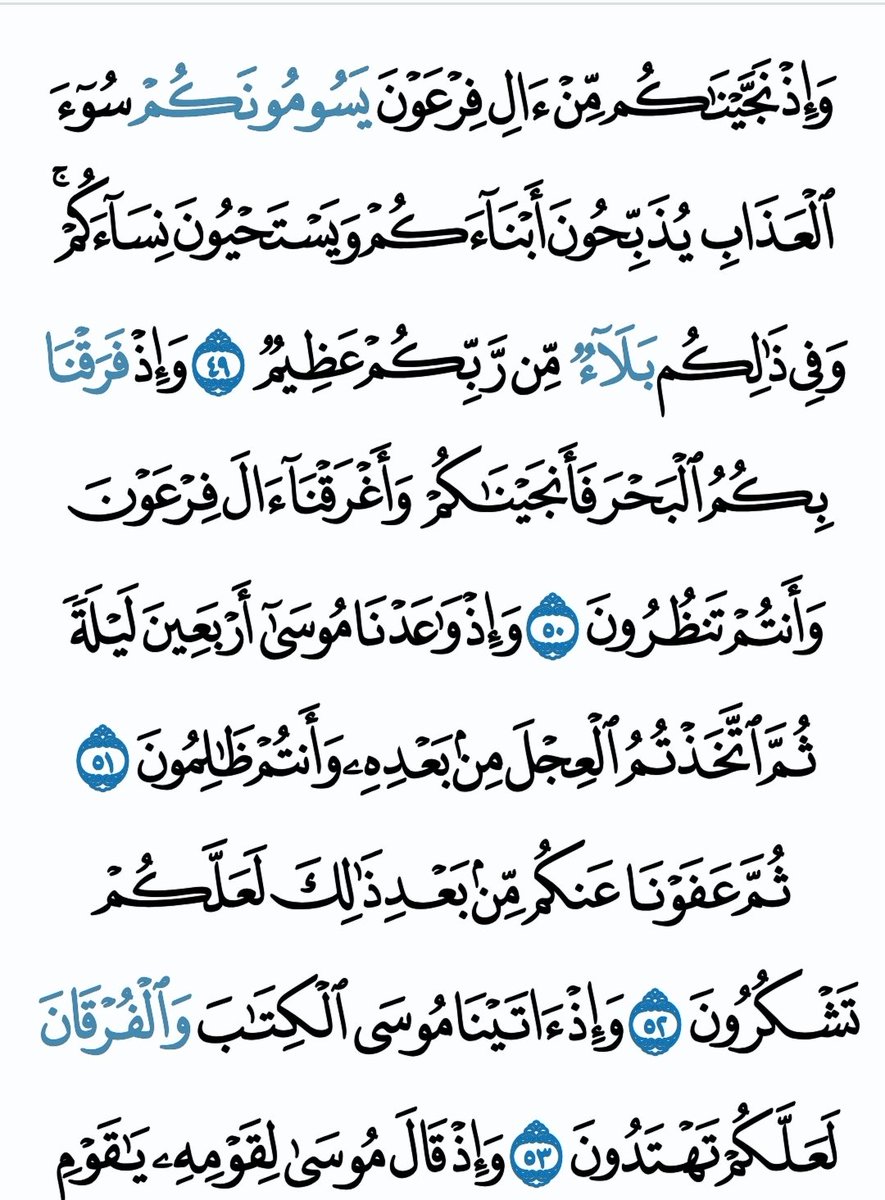 وَإِذْ نَجَّيْنَٰكُم مِّنْ ءَالِ فِرْعَوْنَ يَسُومُونَكُمْ سُوٓءَ
ٱلْعَذَابِ يُذَبِّحُونَ أَبْنَآءَكُمْ وَيَسْتَحْيُونَ نِسَآءَكُمْ ۚ
وَفِى ذَٰلِكُم بَلَآءٌ مِّن رَّبِّكُمْ عَظِيمٌ ٤٩ وَإِذْ فَرَقْنَا
بِكُمُ ٱلْبَحْرَ فَأَنجَيْنَٰكُمْ وَأَغْرَقْنَآ ءَالَ فِرْعَوْنَ
وَأَنتُمْ تَنظُرُونَ ٥٠ وَإِذْ وَٰعَدْنَا مُوسَىٰٓ أَرْبَعِينَ لَيْلَةً
ثُمَّ ٱتَّخَذْتُمُ ٱلْعِجْلَ مِنۢ بَعْدِهِۦ وَأَنتُمْ ظَٰلِمُونَ ٥١
ثُمَّ عَفَوْنَا عَنكُم مِّنۢ بَعْدِ ذَٰلِكَ لَعَلَّكُمْ
تَشْكُرُونَ ٥٢ وَإِذْ ءَاتَيْنَا مُوسَى ٱلْكِتَٰبَ وَٱلْفُرْقَانَ
لَعَلَّكُمْ تَهْتَدُونَ ٥٣ وَإِذْ قَالَ مُوسَىٰ لِقَوْمِهِۦ يَٰقَوْمِ